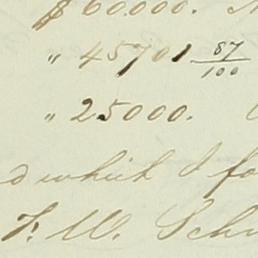 $60.000.
" 45701 87/100
" 25000.
which I
F. W.